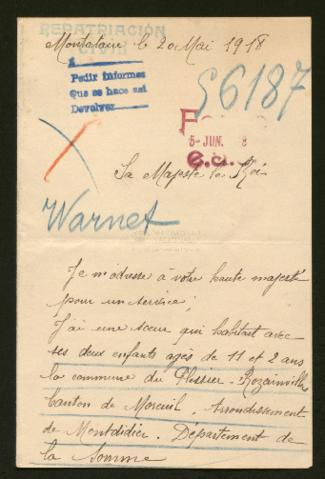 REPATRIACIÓN
CIVIL
Montataire le 20 Mai 1918
A
Pedir informes
Que se hace así
Devolver
56187
5-JUN. 8
e.a.
Sa Majesté le Roi
Warnet
Je m'adresse à votre haute majesté
pour un service;
J'ai une sœur qui habitait avec
ses deux enfants agés de 11 et 2 ans
la commune du Plessier-Rozainvillers
Canton de Moreuil, Arrondissement
de Montdidier. Département de
la Somme